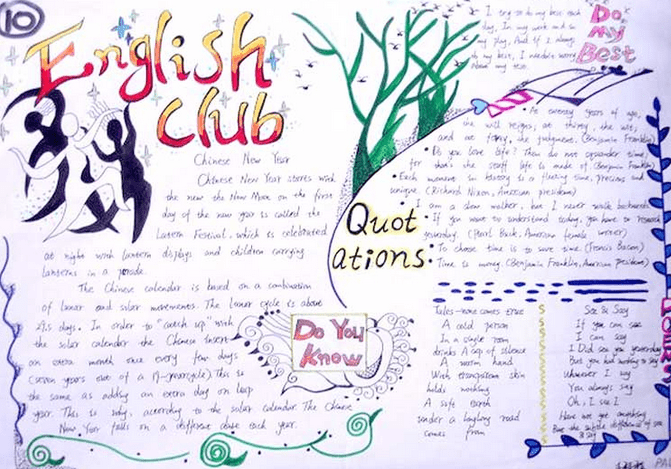 10
English
Club
Chinese New Year
Chinese New Year starts with
the new the New Moon on the first
day of the new year is called the
Latern Festival, which is celebrated
at night with lantern displays and children carrying
lanterns in a parade.
The Chinese calendar is based on a combination
of lunar and solar movements. The lunar cycle is about
29.5 days. In order to "catch up" with
the solar calendar the Chinese insert
an extra month once every few days
(seven years out of a 19-yearcycle) This is
the same as adding an extra day on leap
year. This is why, according to the solar calendar. The Chinese
New Year falls on a different date each year.
Do You
Know
Quot
ations:
Do
My
Best
I try to do my best each
day, In my work and in
my play, And if I always
do my best, I needn't worry
About my test.
At twenty years of age,
the will reigns; at thirty, the wit;
and at forty, the judgment. (Benjamin Franklin)
Do you love life? Then do not squander time,
for that's the stuff life is made of. (Benjamin Franklin)
Each moment in history is a fleeting time, precious and
unique. (Richard Nixon, American president)
I am a slow walker, but I never walk backwards.
If you want to understand today, you have to research
yesterday. (Pearl Buck, American female writer)
To choose time is to save time. (Francis Bacon)
Time is money. (Benjamin Franklin, American president)
Tales-come comes true
A cold person
In a single room
drinks A cup of silence
A warm hand
With transparent skin
holds nothing
A safe earth
under a laughing road
comes from
See & Say
If you can see
I can say
I Did see you yesterday
But you had nothing to say
Whenever I say
You always say
Oh, I see I
Have not got anything
But the subtle difference of see
& say